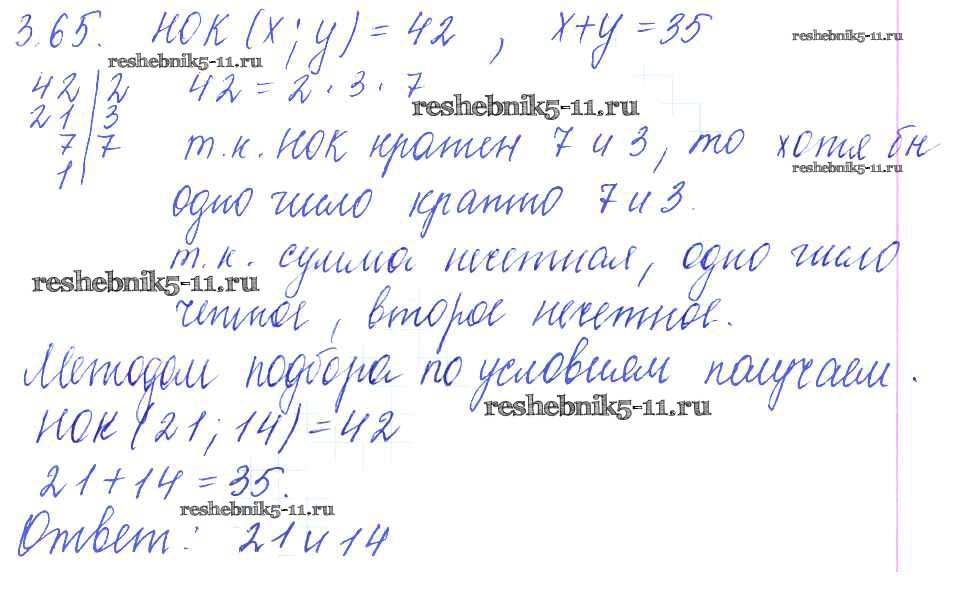 3.65. НОК (x; y) = 42, x+y = 35
reshebnik5-11.ru
reshebnik5-11.ru
42 | 2 42 = 2 · 3 · 7
reshebnik5-11.ru
21 | 3
7 | 7 т.к. НОК кратен 7 и 3, то хотя бы
reshebnik5-11.ru
1 |
одно число кратно 7 и 3.
т.к. сумма нечетная, одно число
reshebnik5-11.ru
четное, второе нечетное.
Методом подбора по условиям получаем.
reshebnik5-11.ru
НОК (21; 14) = 42
21+14 = 35.
reshebnik5-11.ru
Ответ: 21 и 14